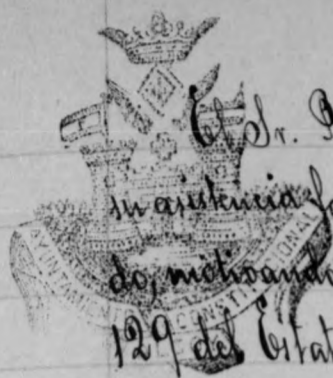 El Sr. P
su asistencia fa
do, motivando
129 del Estat
AYUNTAMIENTO CONSTITUCIONAL